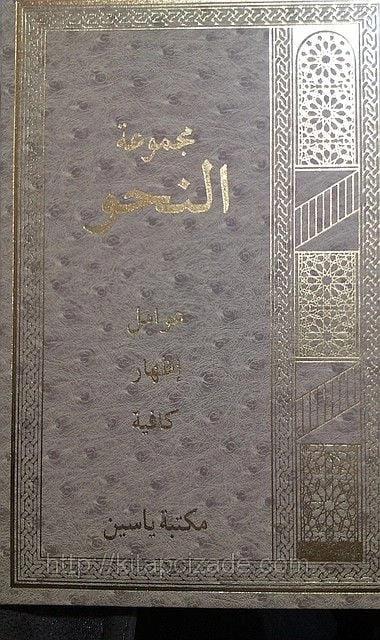 مجموعة
النحو
عوامل
إظهار
كافية
مكتبة ياسين
http://kitapcizade.com